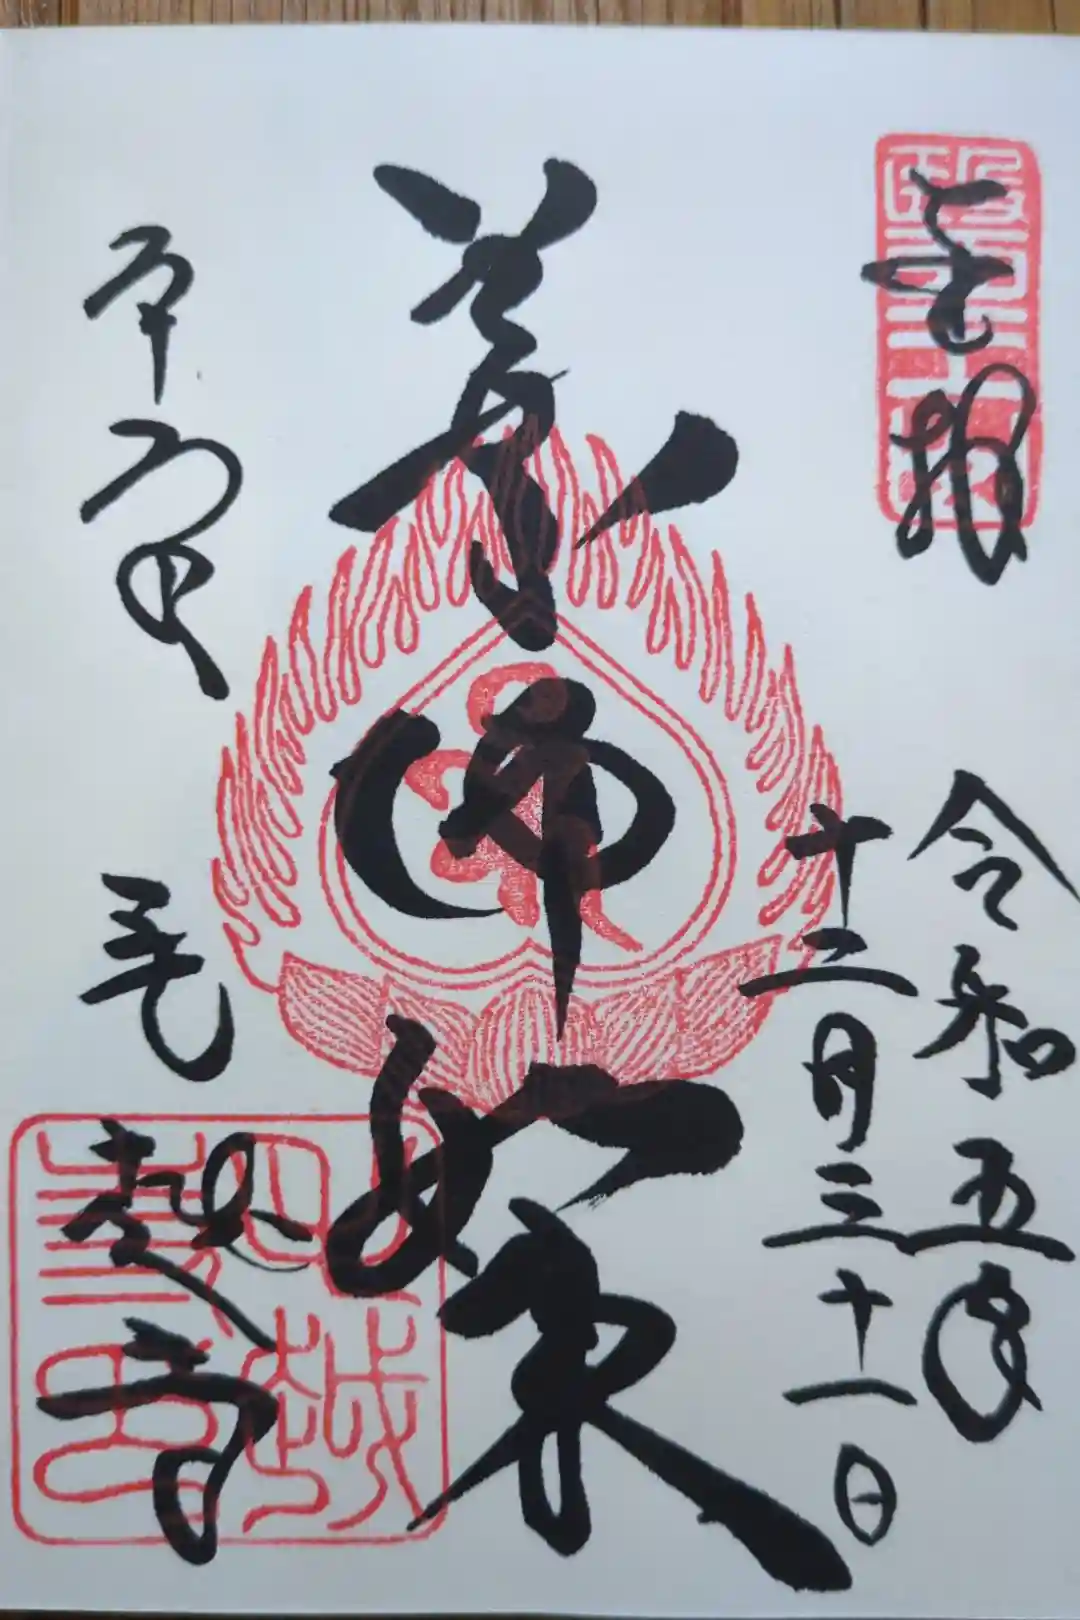 奉拝
令和五年
十二月三十一日
薬師如来
平泉
毛越寺